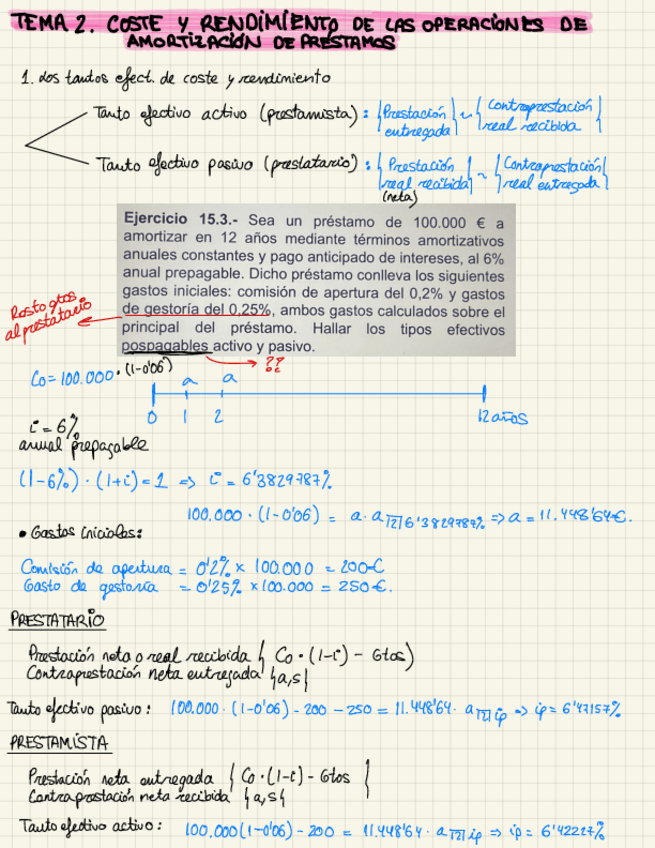 TEMA 2. COSTE Y RENDIMIENTO DE LAS OPERACIONES DE
AMORTIZACIÓN DE PRESTAMOS
1. dos tantos efect. de coste y rendimiento
Tanto efectivo activo (prestamista): {Prestación entregada} ~ {Contraprestación real recibida}
Tanto efectivo pasivo (prestatario): {Prestación real recibida} ~ {Contraprestación real entregada}
(neta)
Ejercicio 15.3.- Sea un préstamo de 100.000 € a
amortizar en 12 años mediante términos amortizativos
anuales constantes y pago anticipado de intereses, al 6%
anual prepagable. Dicho préstamo conlleva los siguientes
gastos iniciales: comisión de apertura del 0,2% y gastos
de gestoría del 0,25%, ambos gastos calculados sobre el
principal del préstamo. Hallar los tipos efectivos
pospagables activo y pasivo.
Resto gtos
al prestatario
??
Co = 100.000 · (1-0'06)
a a
0 1 2 12 años
i = 6%
anual prepagable
(1-6%) · (1+i) = 1 => i = 6'3829787%
100.000 · (1-0'06) = a · a 12| 6'3829787% => a = 11.448'64€.
• Gastos iniciales:
Comisión de apertura = 0'2% x 100.000 = 200€
Gasto de gestoría = 0'25% x 100.000 = 250€.
PRESTATARIO
Prestación neta o real recibida { Co · (1-i) - Gtos }
Contraprestación neta entregada {a,s}
Tanto efectivo pasivo: 100.000 · (1-0'06) - 200 - 250 = 11.448'64 · a 12| ip => ip = 6'47157%
PRESTAMISTA
Prestación neta entregada { Co · (1-i) - Gtos }
Contraprestación neta recibida {a,s}
Tanto efectivo activo: 100.000 (1-0'06) - 200 = 11.448'64 · a 12| ip => ip = 6'42227%